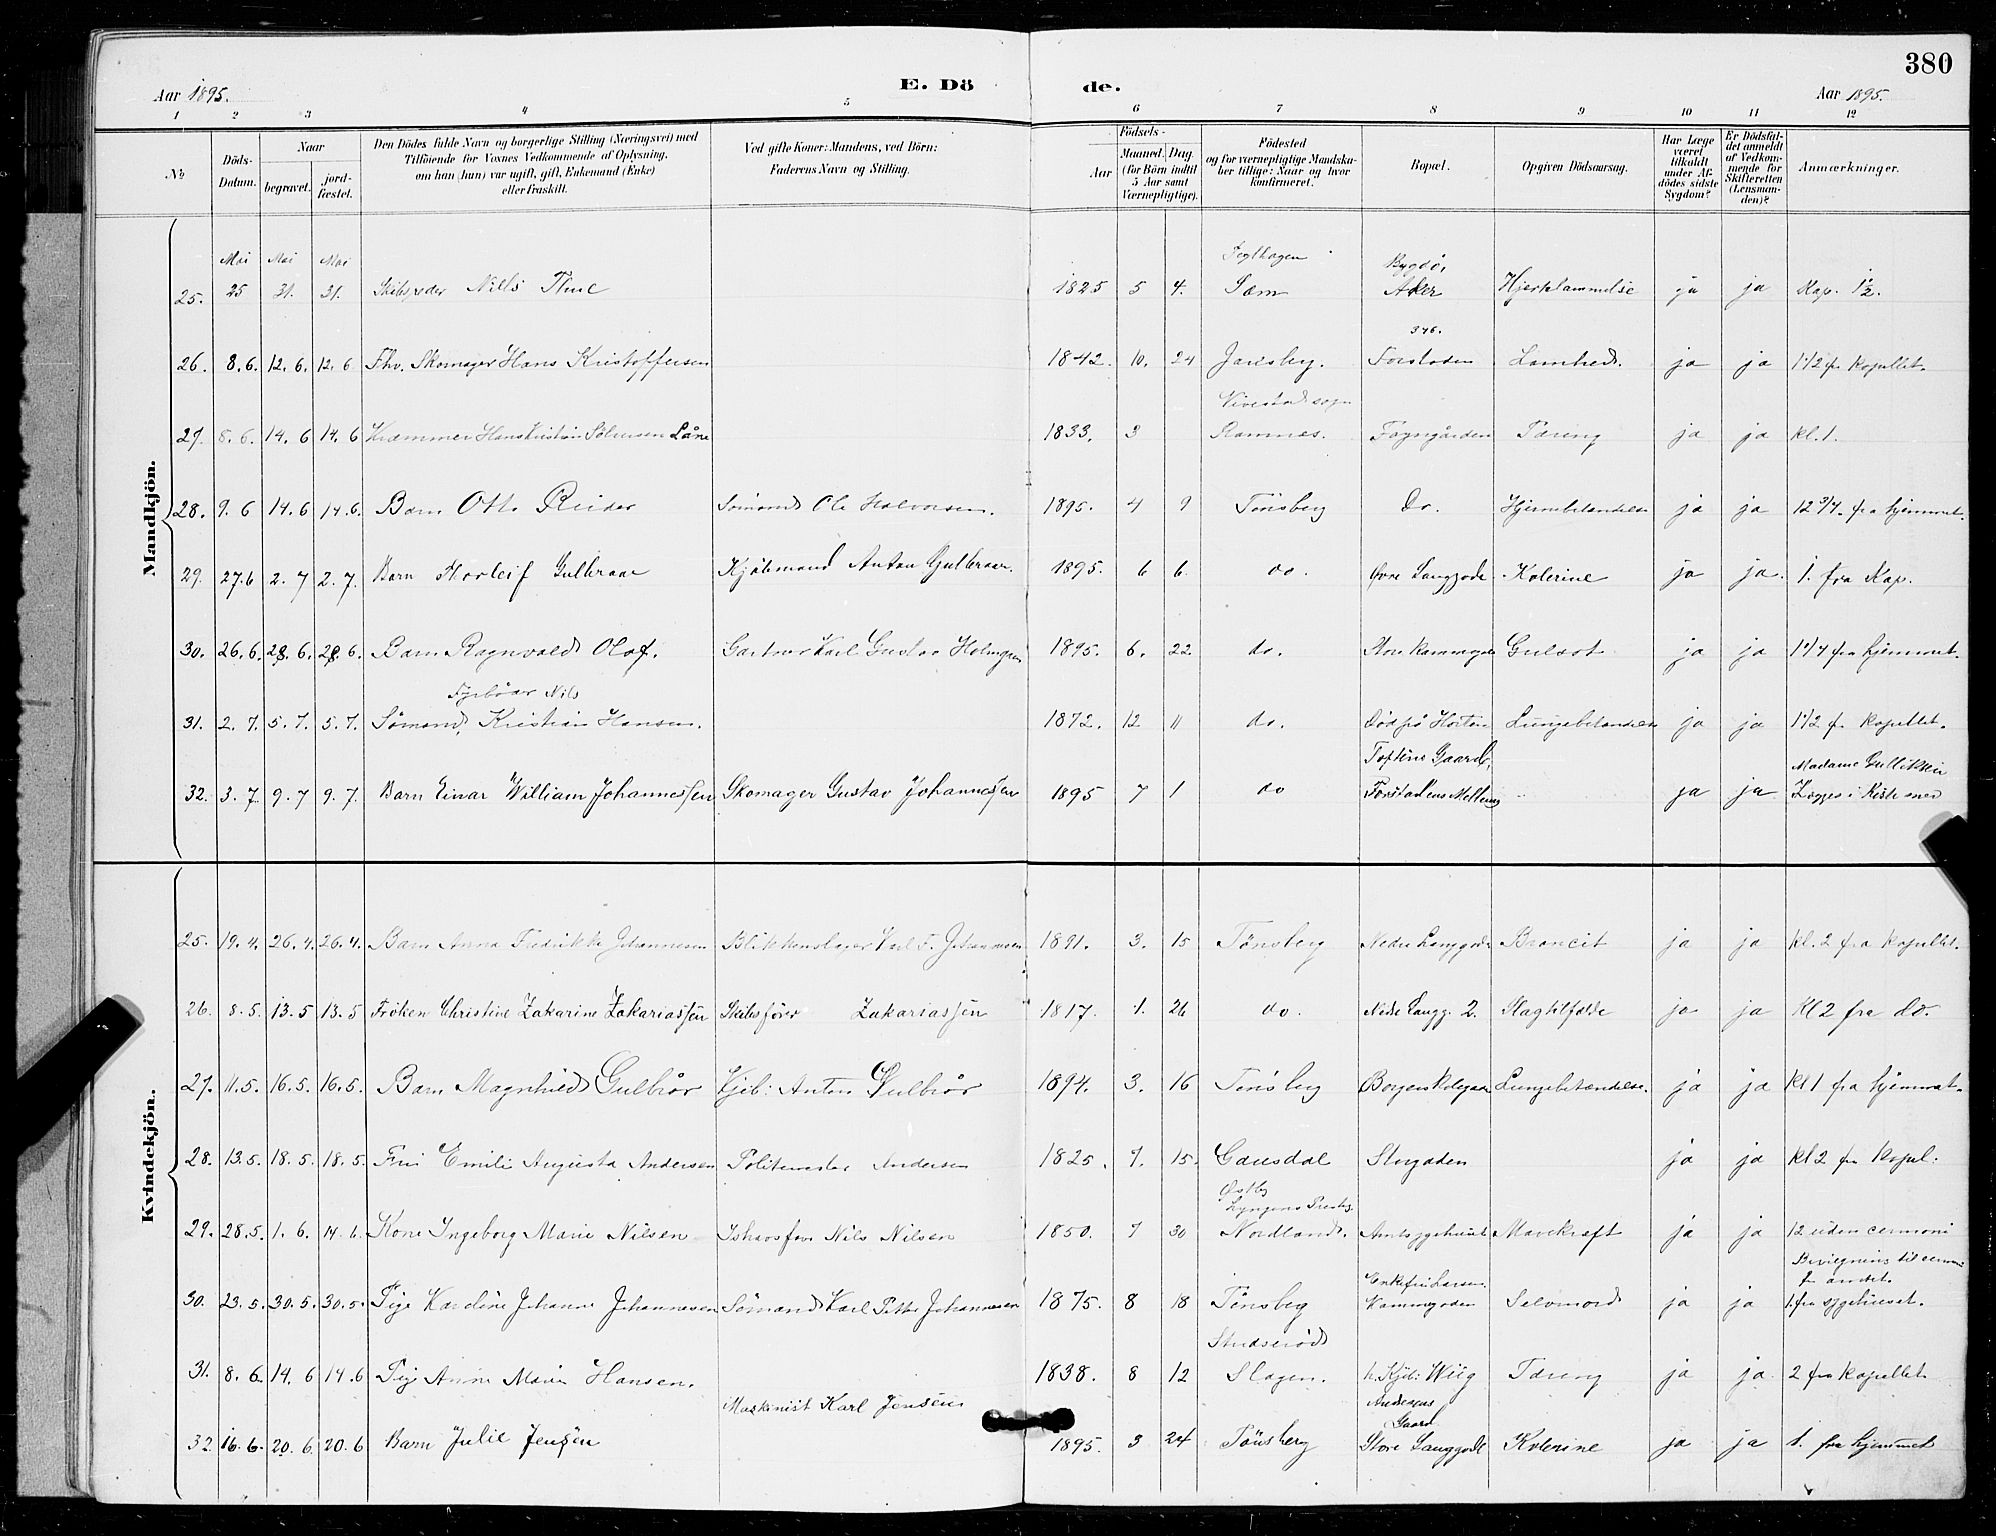 380
Aar 1895.
E. Dö de.
Aar 1895.
1 2 3 4 5 6 7 8 9 10 11 12
No
Döds-Datum.
Naar
begravet.
jord-fæstet.
Den Dödes fulde Navn og borgerlige Stilling (Næringsvei) med
Tilföiende for Voxnes Vedkommende af Oplysning,
om han (hun) var ugift, gift, Enkemand (Enke)
eller fraskilt.
Ved gifte Koner: Mandens, ved Börn:
Faderens Navn og Stilling.
Födsels-
Aar
Maaned. Dag.
(for Börn indtil
5 Aar samt
Værnepligtige).
Födested
og for værnepligtige Mandska-
ber tillige: Naar og hvor
konfirmeret.
Bopæl.
Opgiven Dödsaarsag.
Har Læge
været
tilkaldt
under Af-
dödes sidste
Sygdom?
Er Dödsfal-
det anmeldt
af Vedkom-
mende for
Skifteretten
(Lensman-
den)?
Anmærkninger.
Mandkjön.
Mai Mai Mai Teglhagen Bygdö,
25. 25 31. 31. Skibsreder Nills Thue 1825 5 4. Sem Aker Hjertelammelse ja ja Kap. 1/2.
346.
26. 8.6. 12.6. 12.6 Fhv. Skomager Hans Kristoffersen 1842. 10. 24 Jarlsberg. Forstaden Lamhed. ja ja 1 1/2 fr kapellet.
Vivestad sogn
27. 8.6. 14.6 14.6 Kræmmer Hans Kristian Sörensen Låne 1833. 3 Ramnes. Fayegården Tæring ja ja kl. 1.
28. 9.6 14.6 14.6. Barn Otto Reider Sömand Ole Halvorsen. 1895. 4 9 Tönsberg Do. Hjernebetændelse ja ja 12 3/4 fra hjemmet.
29. 27.6 2.7 2.7. Barn Thorleif Gulbraar Kjöbmand Anton Gulbraar. 1895. 6 6 do. Övre Langgade Kolerine ja ja. 1. fra Kap.
30. 26.6. 28.6. 28.6. Barn Ragnvald Olaf. Gartner Karl Gustav Holmgren 1895. 6. 22. do. Store Kammegade Gulsot ja ja 1 1/4 fra hjemmet.
Fyrböder Nils
31. 2.7. 5.7. 5.7. Sömand, Kristian Hansen. 1872. 12 11 do. Död på Horten Lungebetændelse ja ja 1 1/2 fr kapellet.
Toftene Gaard, Madame Gullikken
32. 3.7 9.7 9.7. Barn Einar William Johannessen Skomager Gustav Johannessen 1895 7 1 do Forstadens Mellemg ja ja Lægges i Kiste med
Kvindekjön.
25. 19.4. 26.4. 26.4. Barn Anna Fredrikke Johannesen Blikkenslager Karl F. Johannesen 1891. 3. 15 Tönsberg Nedre Langgade Broncit ja ja kl. 2 fra kapellet.
26. 8.5. 13.5 13.5 Fröken Christine Zakarine Zakariassen Skibsförer Zakariassen 1817. 1. 26 do. Nedre Langg. 2. Slagtilfælde ja ja Kl 2 fra do.
27. 11.5. 16.5. 16.5. Barn Magnhild Gulbrår Kjöb: Anton Gulbrår 1894. 3. 16 Tönsberg Lungebetændelse. ja ja Kl 1 fra hjemmet.
28. 13.5. 18.5. 18.5. Fru Emilie Augusta Andersen Politimester Andersen 1825. 9. 15. Gausdal Storgaden ja ja Kl 2 fr kapel:
Östby
Lyngens Prestg.
29. 28.5. 1.6. 14.6. Kone Ingeborg Marie Nilsen Ishavsfar. Nils Nilsen 1850. 9 30 Nordland. Amtssygehuset Mavekræft ja ja 12 uden cermoni
fr amtet.
Enkefru Larsen.
30. 23.5. 30.5. 30.5. Pige Karoline Johanne Johannesen Sömand Karl Petter Johannesen 1875. 8 18 Tönsberg Kammegaden Selvmord ja ja 1. fra sygehuset.
Studseröd
31. 8.6. 14.6 14.6 Pige Anne Marie Hansen. 1838. 8 12 Slagen. h. Kjöb: Wiig Tæring ja ja 2 fra kapellet
Maskinist Karl Jensen Andersens
Gaard
32 16.6. 20.6. 20.6 Barn Julie Jensen 1895. 3 24 Tönsberg Store Langgade Kolerine ja ja 1. fra hjemmet